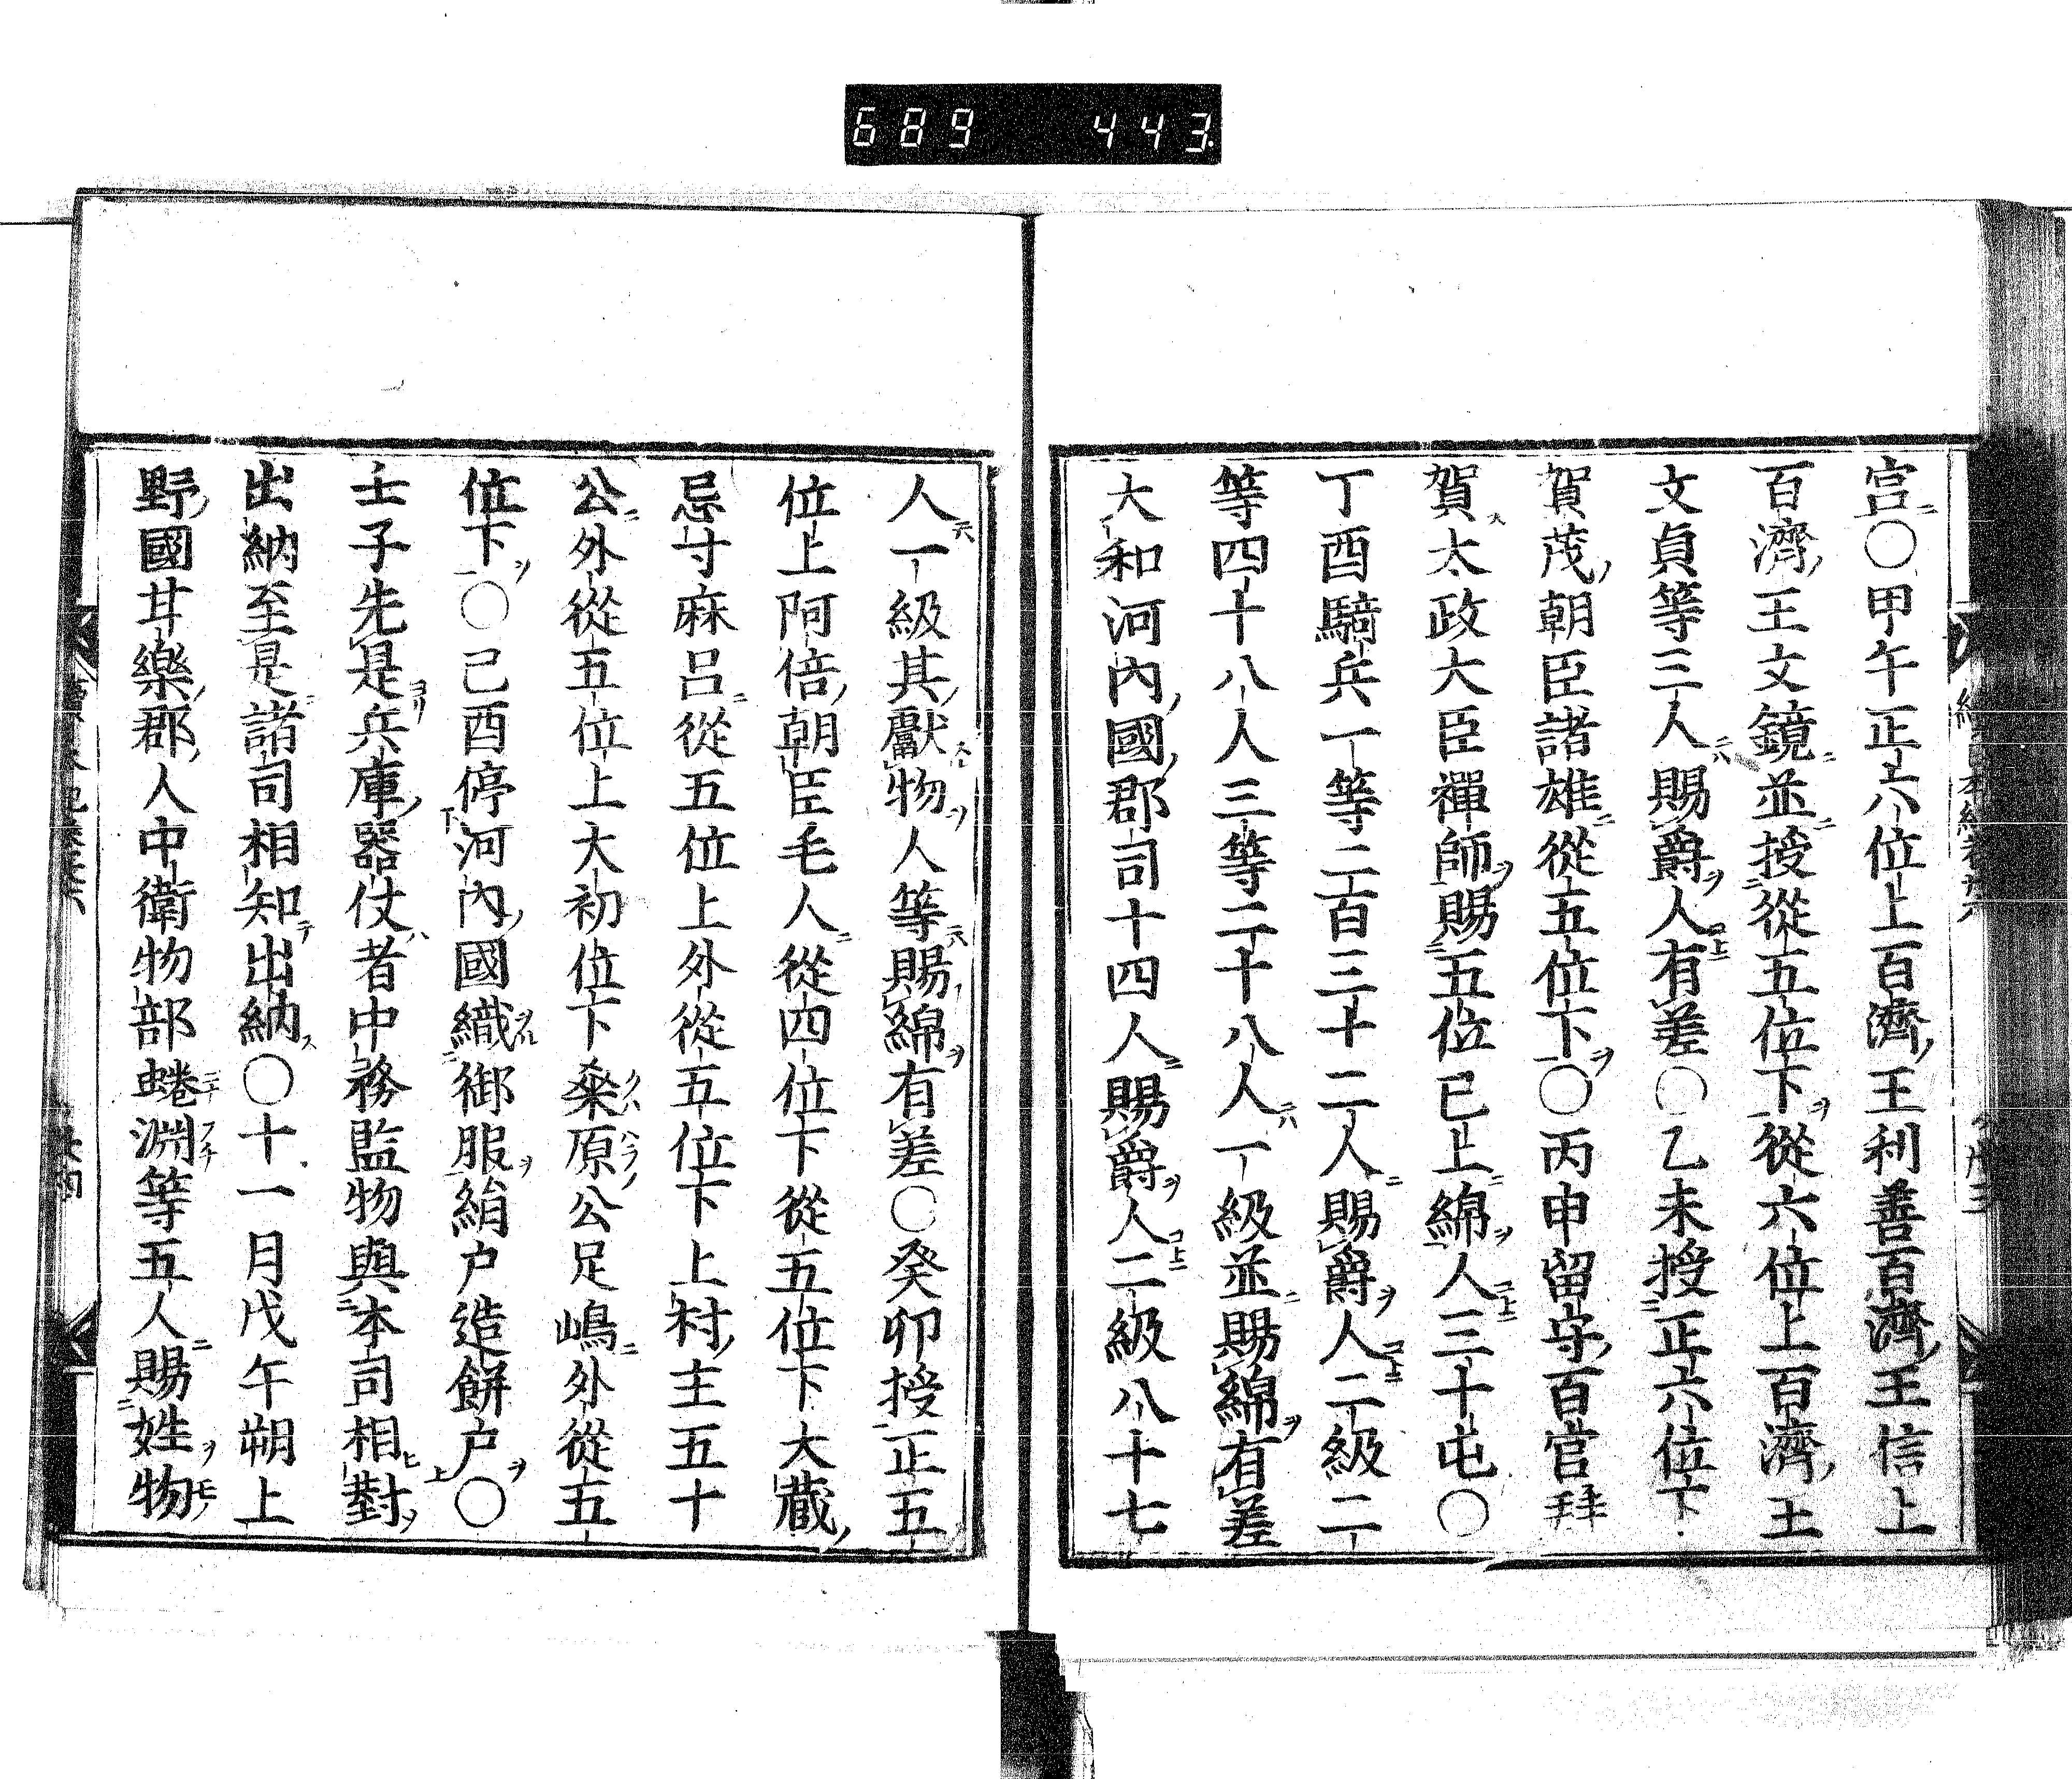 689 443
宮○甲午正六位上百濟王利善百濟王信上
百濟王文鏡並授從五位下從六位上百濟王
文貞等三人賜爵人有差○乙未授正六位下
賀茂朝臣諸雄從五位下○丙申留守百官拜
賀太政大臣禪師賜五位已上綿人三十屯○
丁酉騎兵一等二百三十二人賜爵人二級二
等四十八人三等二十八人一級並賜綿有差
大和河內國郡司十四人賜爵人二級八十七
人一級其獻物人等賜綿有差○癸卯授正五
位上阿倍朝臣毛人從四位下從五位下大藏
忌寸麻呂從五位上外從五位下上村主五十
公外從五位上大初位下桒原公足嶋外從五
位下○己酉停河內國織御服絹户造餅户○
壬子先是兵庫器仗者中務監物與本司相對
出納至是諸司相知出納○十一月戊午朔上
野國甘樂郡人中衛物部蜷淵等五人賜姓物